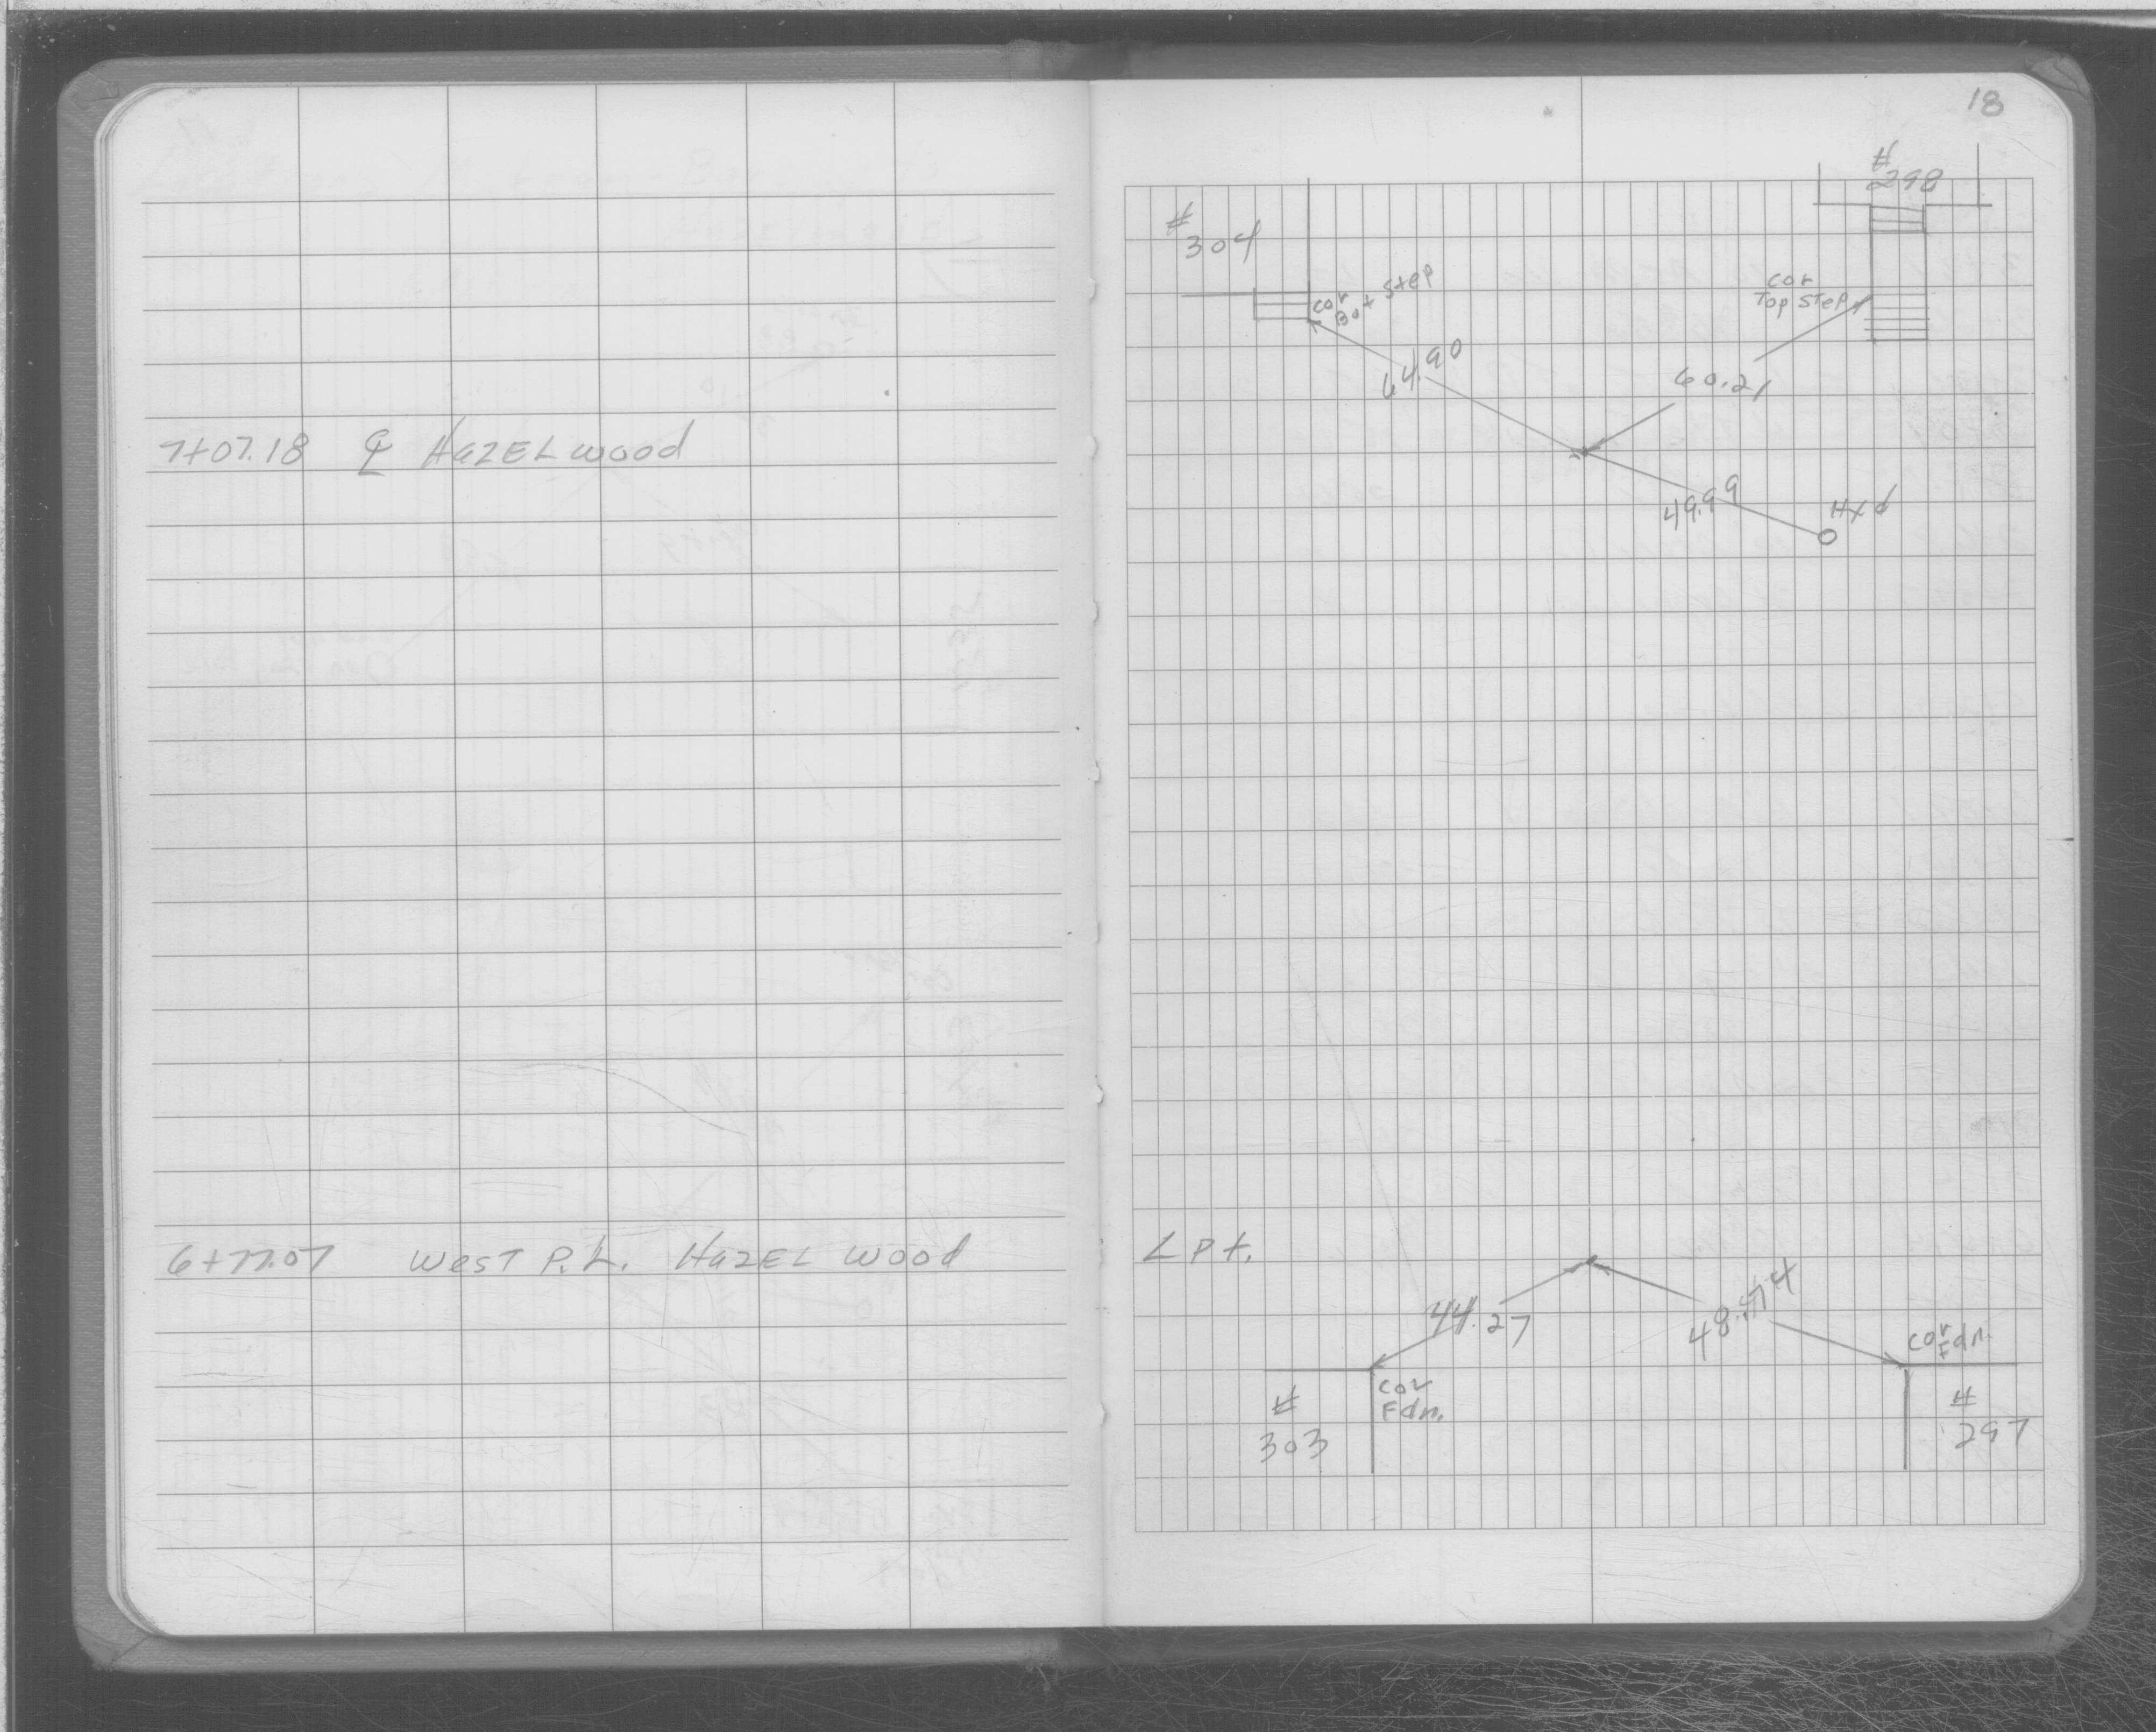 18
#
298
#
304
cor
Bot Step
cor
Top Step
64.90
60.21
7+07.18 ℄ HAZELwood
49.99
Hyd
6+77.07 WEST P.L. HAZEL wood
L Pt.
44.27
cor
Fdn.
cor
Fdn.
#
303
#
297